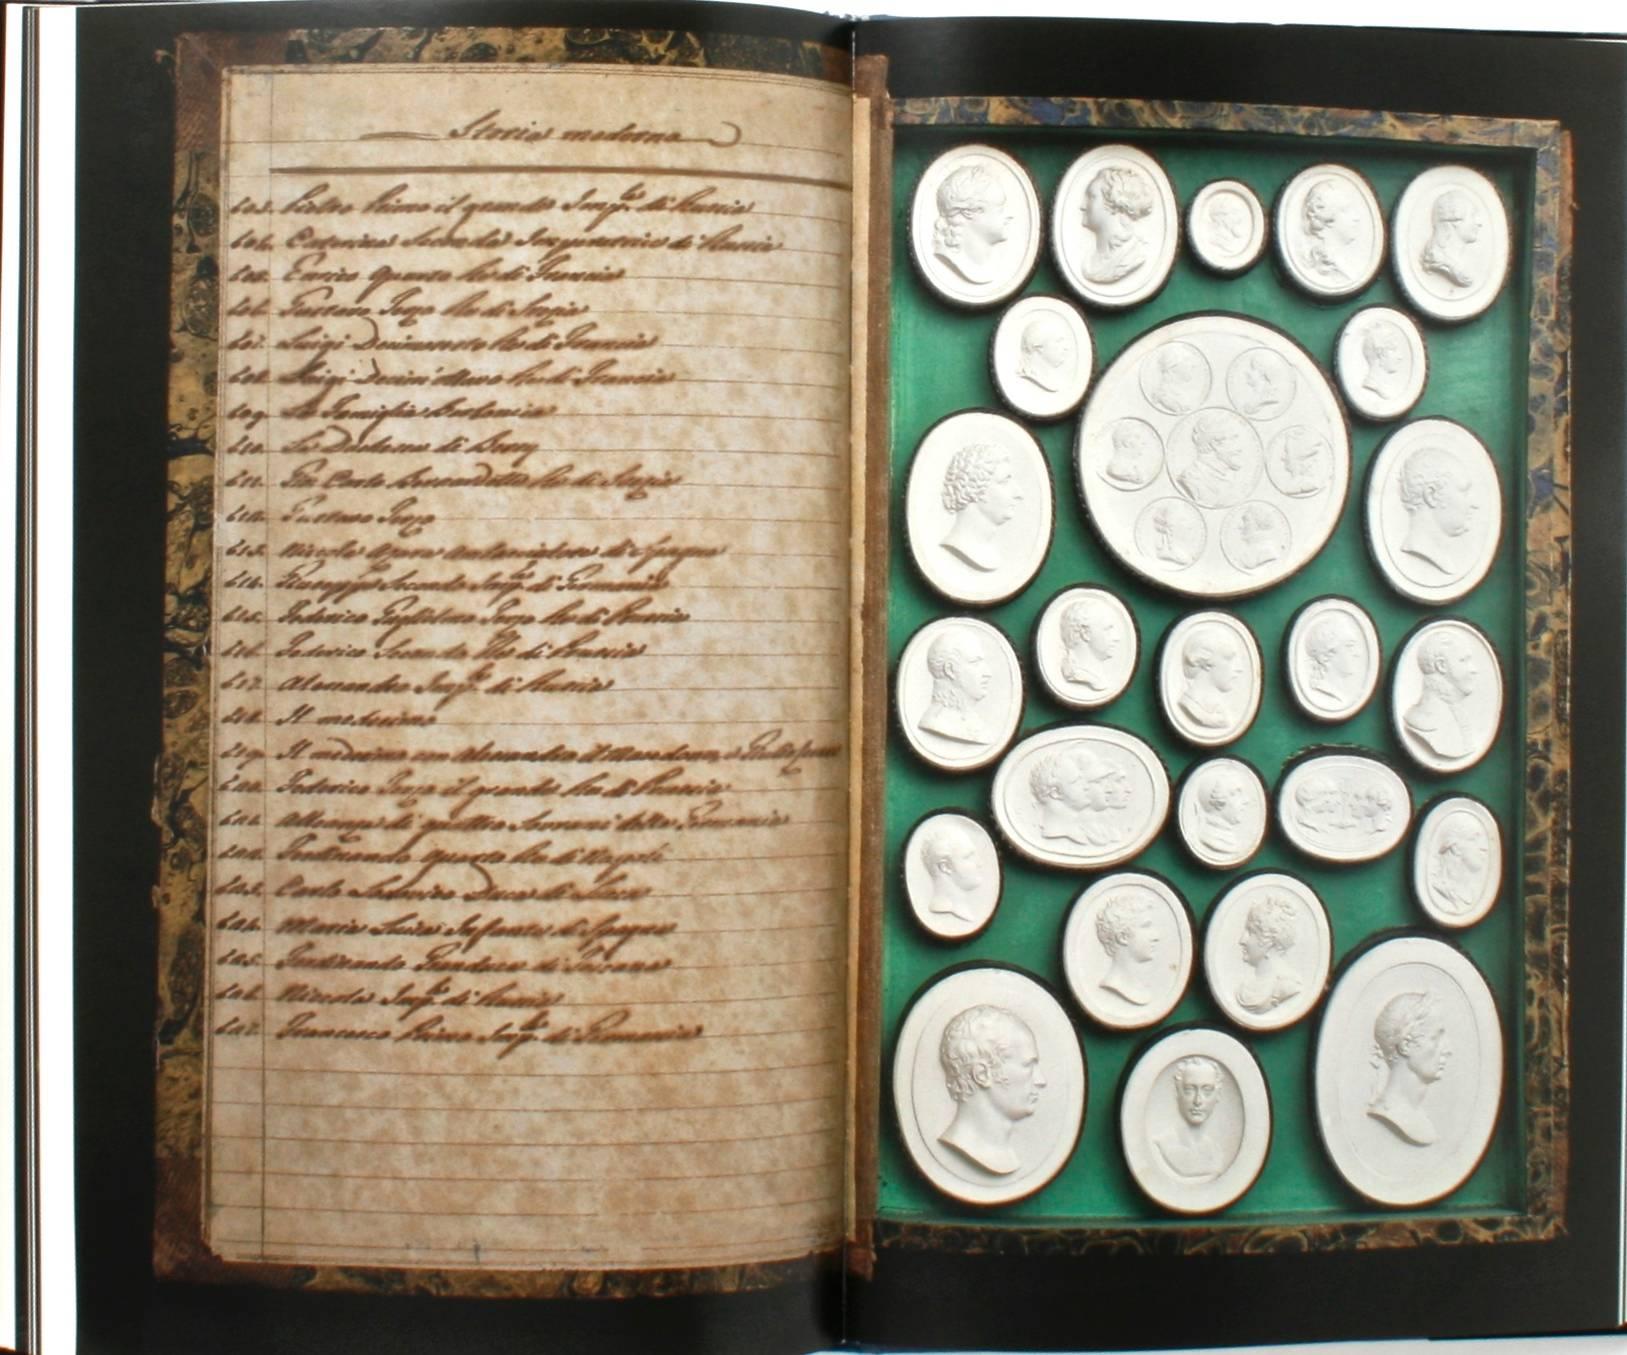 Storia moderna
603. Pietro Primo il grande Imp.re di Russia
604. Caterina Seconda Imperatrice di Russia
605. Enrico Quarto Re di Francia
606. Gustavo Terzo Re di Svezia
607. Luigi Decimosesto Re di Francia
608. Luigi Decim'ottavo Re di Francia
609. La Famiglia Borbonica
610. La Duchessa di Berry
611. Gio Carlo Bernardotte Re di Svezia
612. Gustavo Terzo
613. Niccola Azara di Spagna
614. Giuseppe Secondo Imp.re di Germania
615. Federico Guglielmo Terzo Re di Prussia
616. Federico Secondo Re di Prussia
617. Alessandro Imp.re di Russia
618. Il medesimo
619. Il medesimo con Alessandro il Macedone, e Giulio Cesare
620. Federico Terzo il grande Re di Prussia
621. Alleanza di quattro Sovrani della Germania
622. Ferdinando Quarto Re di Napoli
623. Carlo Lodovico Duca di Lucca
624. Maria Luisa Infanta di Spagna
625. Ferdinando Granduca di Toscana
626. Niccola Imp.re di Russia
627. Francesco Primo Imp.re di Germania